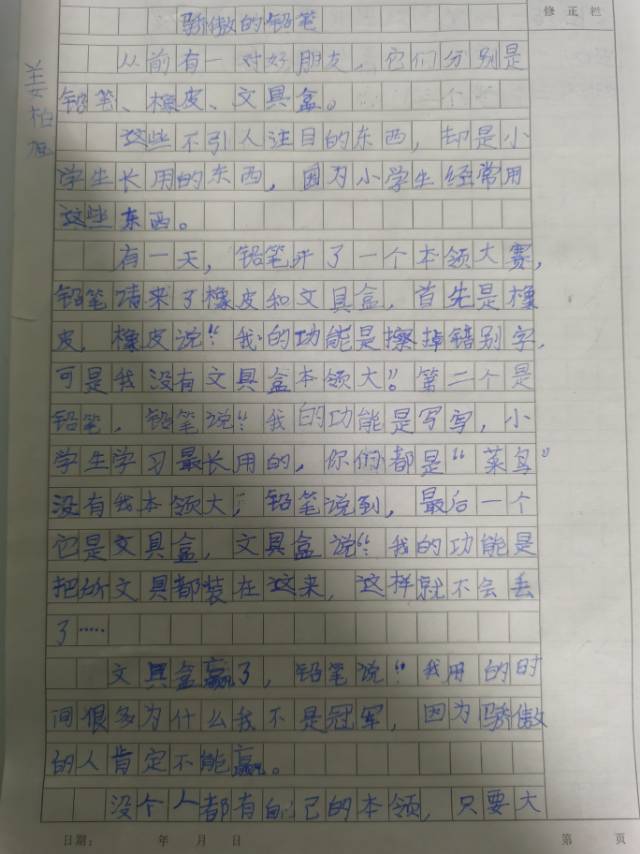 修正栏
骄傲的铅笔
从前有一对好朋友，它们分别是
铅笔、橡皮、文具盒。
这些不引人注目的东西，却是小
学生长用的东西，因为小学生经常用
这些东西。
有一天，铅笔开了一个本领大赛，
铅笔请来了橡皮和文具盒，首先是橡
皮，橡皮说“我的功能是擦掉错别字，
可是我没有文具盒本领大”。第二个是
铅笔，铅笔说“我的功能是写写，小
学生学习最长用的，你们都是“菜鸟”
没有我本领大，铅笔说到，最后一个
它是文具盒，文具盒说“我的功能是
把所文具都装在这来，这样就不会丢
了……
文具盒赢了，铅笔说“我用的时
间很多为什么我不是冠军，因为骄傲
的人肯定不能赢。
没个人都有自己的本领，只要大
日期： 年 月 日 第 页
姜柏